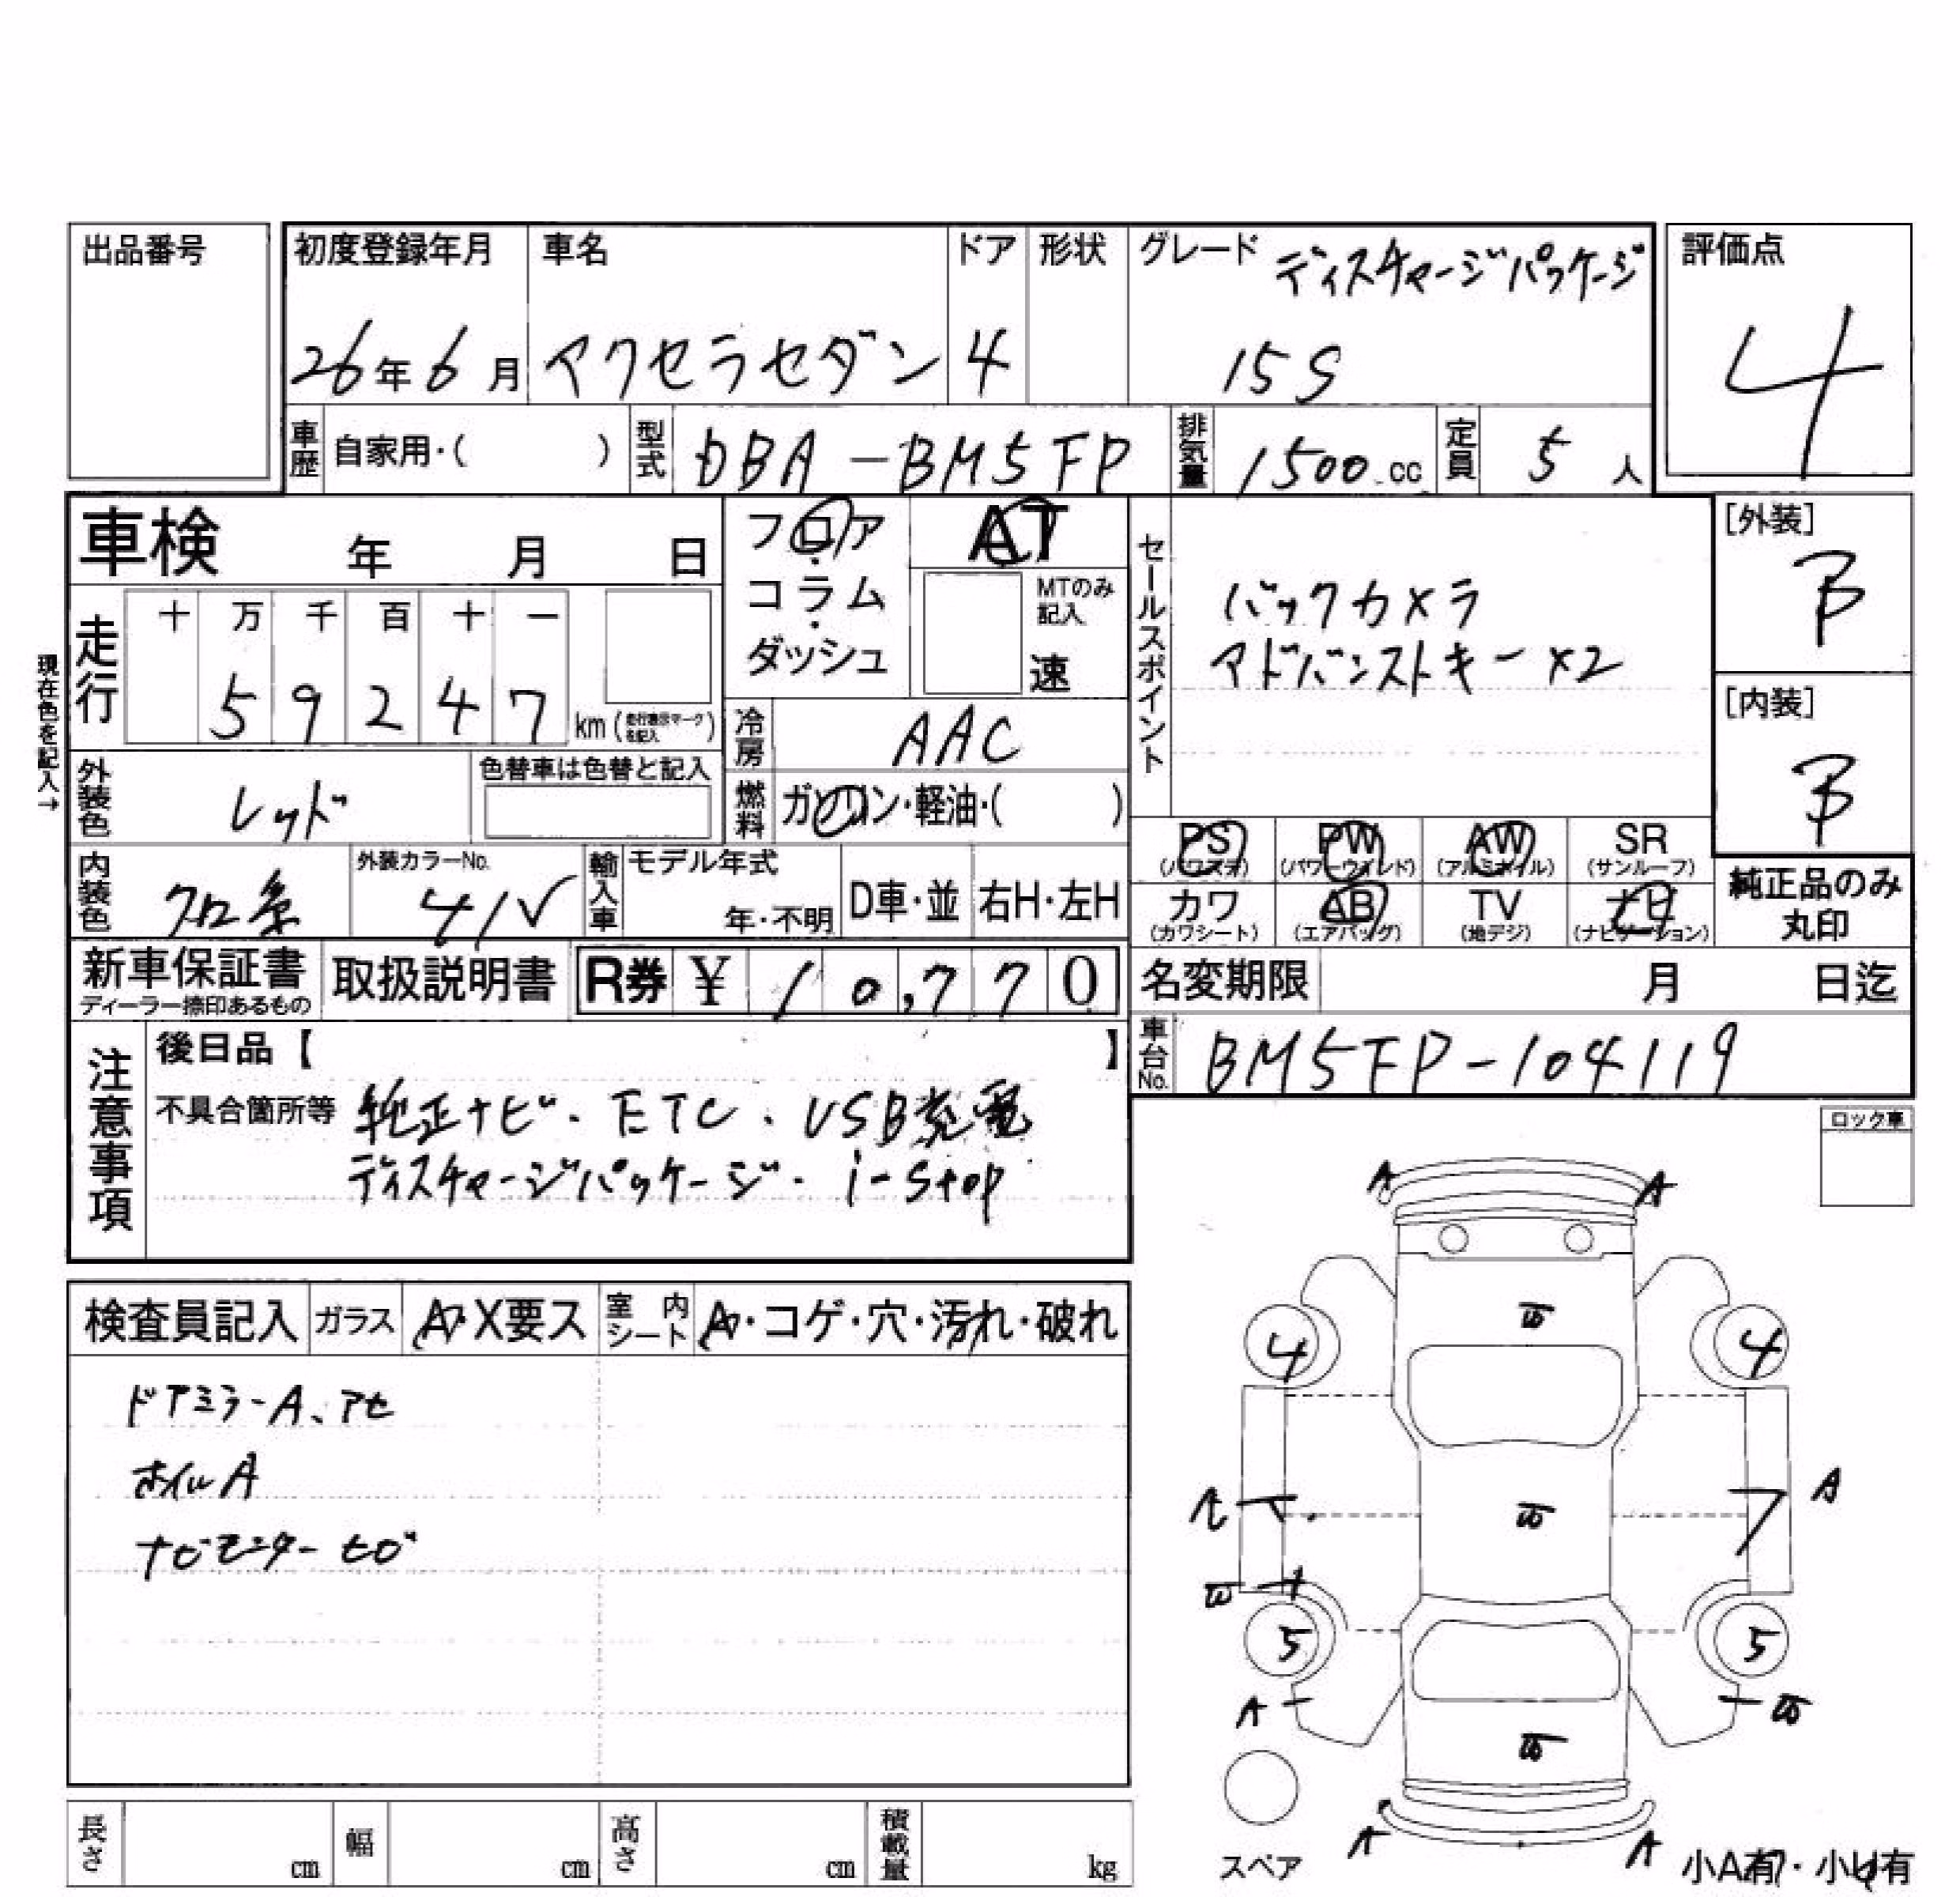 出品番号
初度登録年月 車名 ドア 形状 グレード ディスチャージパッケージ 評価点
26年6月 アクセラセダン 4 15S 4
車歴 自家用・( ) 型式 DBA-BM5FP 排気量 1500.cc 定員 5人
車検 年 月 日 フロア AT セールスポイント [外装]
コラム MTのみ記入 バックカメラ B
ダッシュ 速 アドバンストキー×2
現在色を記入→
走行 十 万 千 百 十 一
5 9 2 4 7 km (走行表示マークを記入) [内装]
冷房 AAC B
外装色 レッド 色替車は色替と記入 燃料 ガソリン・軽油・( )
PS (パワステ) PW (パワーウインド) AW (アルミホイル) SR (サンルーフ)
内装色 クロ系 外装カラーNo. 41V 輸入車 モデル年式 年・不明 D車・並 右H・左H
カワ (カワシート) AB (エアバッグ) TV (地デジ) ナビ (ナビゲーション) 純正品のみ丸印
新車保証書 ディーラー捺印あるもの 取扱説明書 R券 ¥ 10,770 名変期限 月 日迄
車台No. BM5FP-104119
注意事項 後日品【 】
不具合箇所等 純正ナビ・ETC・USB充電
ディスチャージパッケージ・i-stop
ロック車
A A
検査員記入 ガラス A・X要ス 室内シート A・コゲ・穴・汚れ・破れ
ドアミラーA、アセ
ホイルA
ナビモニターヒビ
4 4
A
5 5
A
A A
スペア
小A有・小U有
長さ cm 幅 cm 高さ cm 積載量 kg